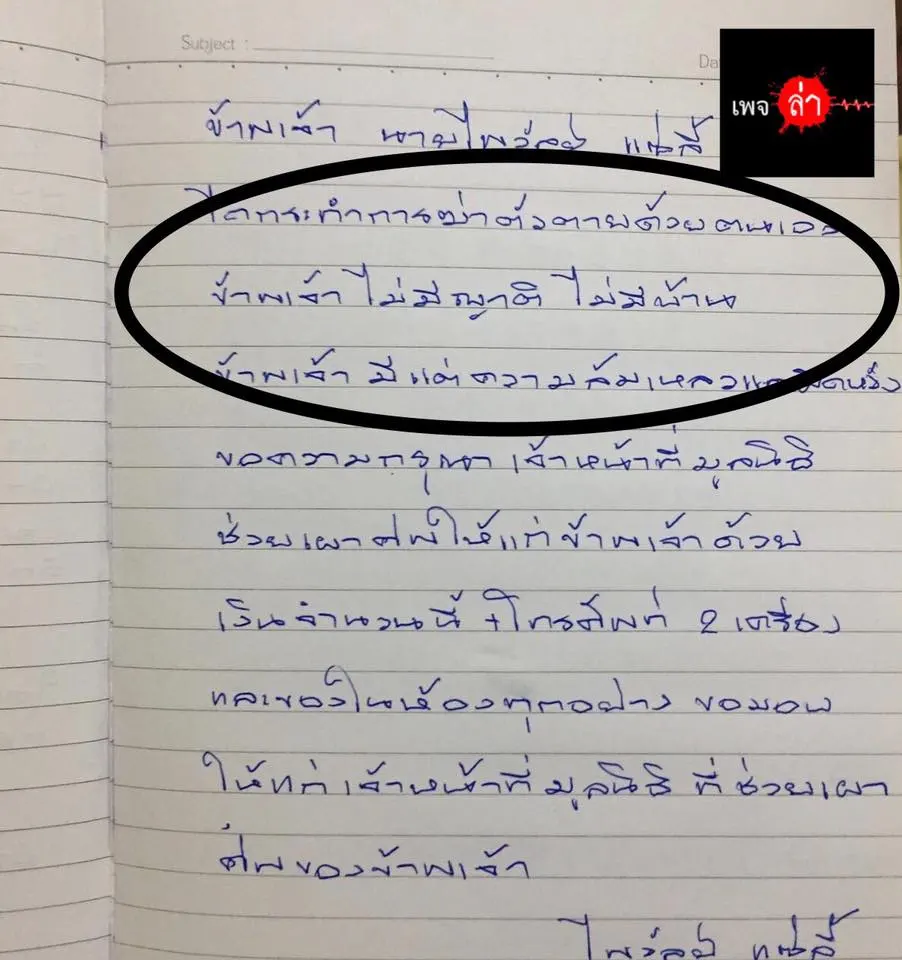 Subject :
Da
เพจ ล่า
ข้าพเจ้า นายไพรัลย์ แซ่ลี้
ได้กระทำการฆ่าตัวตายด้วยตนเอง
ข้าพเจ้า ไม่มีญาติ ไม่มีบ้าน
ข้าพเจ้า มีแต่ความล้มเหลวและผิดหวัง
ขอความกรุณา เจ้าหน้าที่ มูลนิธิ
ช่วยเผาศพให้แก่ข้าพเจ้าด้วย
เงินจำนวนนี้ + โทรศัพท์ 2 เครื่อง
และของในห้องทุกอย่าง ขอมอบ
ให้แก่ เจ้าหน้าที่ มูลนิธิ ที่ช่วยเผา
ศพของข้าพเจ้า
แซ่ลี้